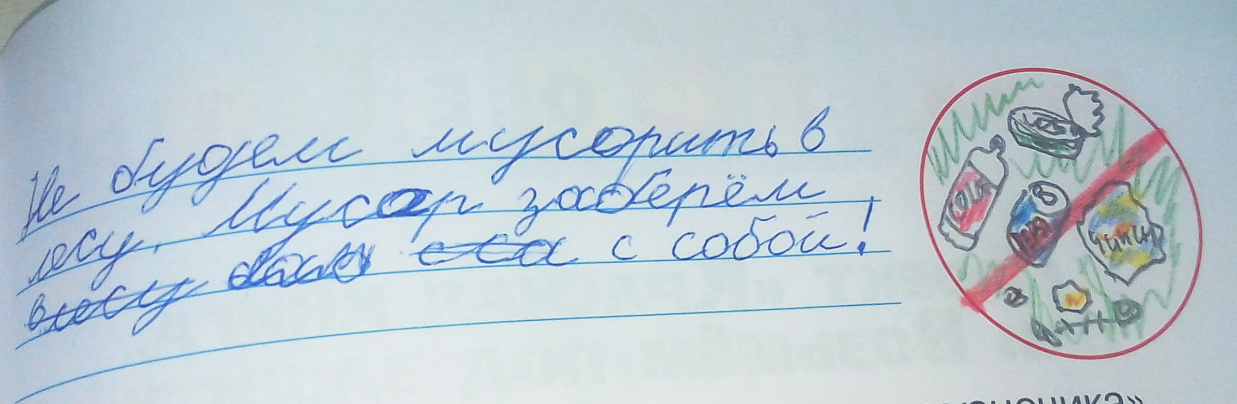 Не будем мусорить в
лесу. Мусор заберём
с собой!
COLA
ЧИПСЫ